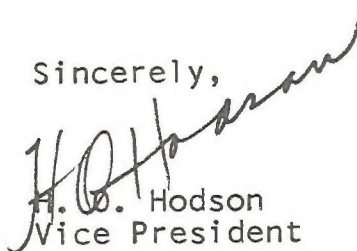 Sincerely,
H. Hodson
H. Hodson
Vice President